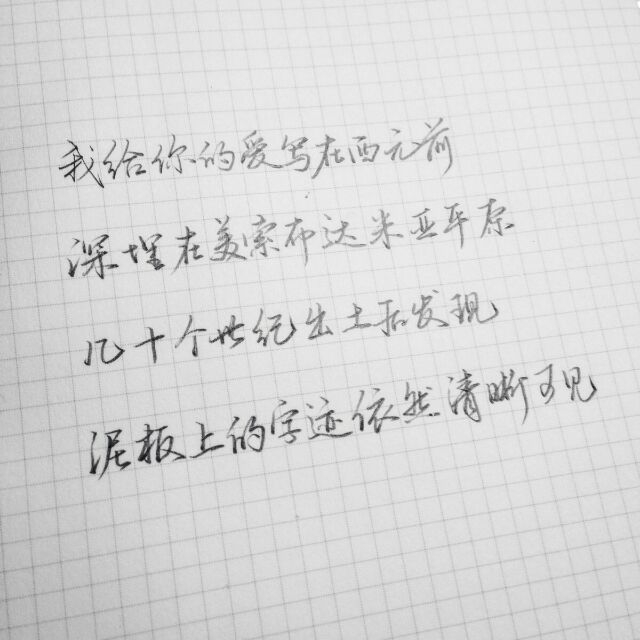 我给你的爱写在西元前
深埋在美索布达米亚平原
几十个世纪出土后发现
泥板上的字迹依然清晰可见